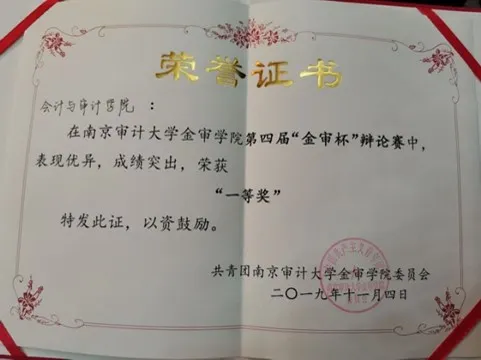 荣誉证书
会计与审计学院：
在南京审计大学金审学院第四届“金审杯”辩论赛中，
表现优异，成绩突出，荣获
“一等奖”
特发此证，以资鼓励。
共青团南京审计大学金审学院委员会
二〇一九年十一月四日